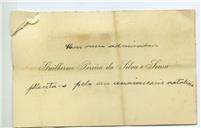 Um seu admirador
Guilherme Pereira da Silva e Sousa
felicita-o pelo seu aniversario natalicio